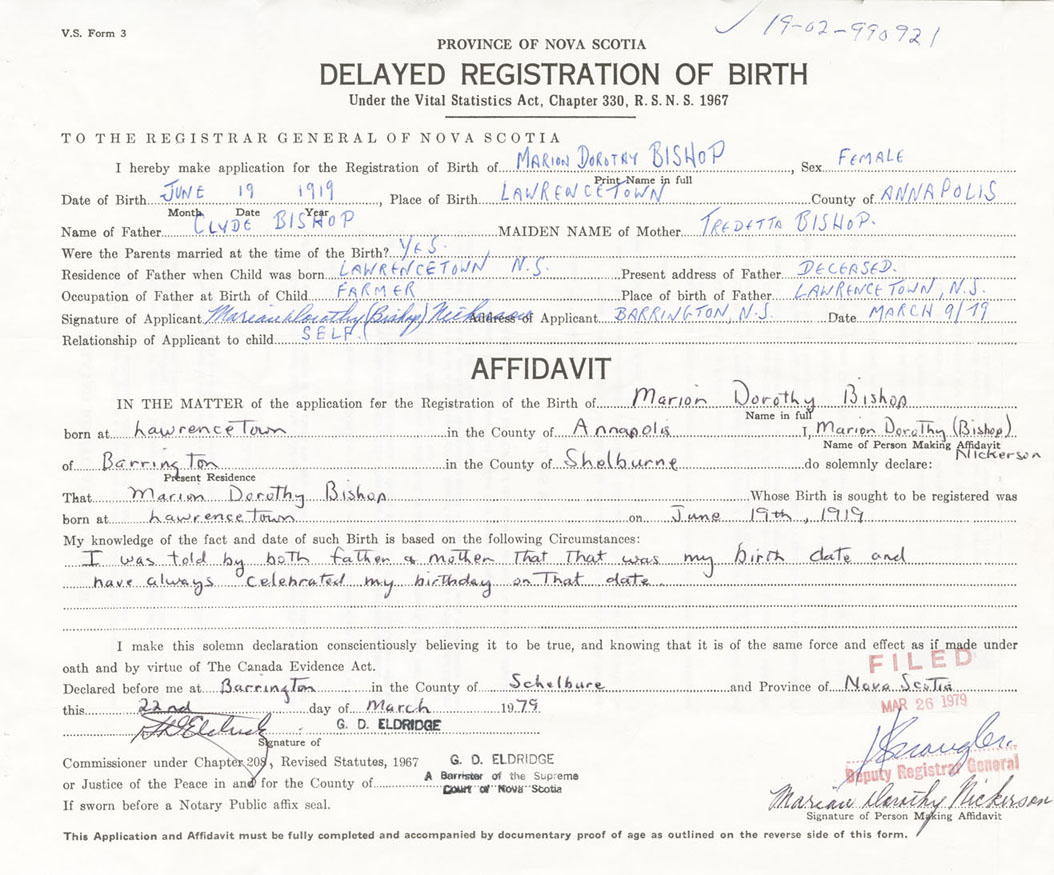 V.S. Form 3
19-02-990921
PROVINCE OF NOVA SCOTIA
DELAYED REGISTRATION OF BIRTH
Under the Vital Statistics Act, Chapter 330, R.S.N.S. 1967
TO THE REGISTRAR GENERAL OF NOVA SCOTIA
I hereby make application for the Registration of Birth of MARION DOROTHY BISHOP, Sex FEMALE
Print Name in full
Date of Birth JUNE 19 1919, Place of Birth LAWRENCETOWN County of ANNAPOLIS
Month Date Year
Name of Father CLYDE BISHOP MAIDEN NAME of Mother TREDETTA BISHOP.
Were the Parents married at the time of the Birth? YES.
Residence of Father when Child was born LAWRENCETOWN N.S. Present address of Father DECEASED.
Occupation of Father at Birth of Child FARMER Place of birth of Father LAWRENCETOWN, N.S.
Signature of Applicant Marian Dorothy (Bishop) Nickerson Address of Applicant BARRINGTON, N.S. Date MARCH 9/79
Relationship of Applicant to child SELF.
AFFIDAVIT
IN THE MATTER of the application for the Registration of the Birth of Marion Dorothy Bishop
Name in full
born at Lawrencetown in the County of Annapolis I, Marion Dorothy (Bishop)
Name of Person Making Affidavit
Nickerson
of Barrington in the County of Shelburne do solemnly declare:
Present Residence
That Marion Dorothy Bishop Whose Birth is sought to be registered was
born at Lawrencetown on June 19th, 1919
My knowledge of the fact and date of such Birth is based on the following Circumstances:
I was told by both father & mother That That was my birth date and
have always celebrated my birthday on That date.
I make this solemn declaration conscientiously believing it to be true, and knowing that it is of the same force and effect as if made under
oath and by virtue of The Canada Evidence Act.
FILED
Declared before me at Barrington in the County of Schelbure and Province of Nova Scotia
MAR 26 1979
this 22nd day of March 1979
G. D. ELDRIDGE
Signature of
Commissioner under Chapter 208, Revised Statutes, 1967 G. D. ELDRIDGE
or Justice of the Peace in and for the County of A Barrister of the Supreme
Court of Nova Scotia
Deputy Registrar General
If sworn before a Notary Public affix seal.
Marian Dorothy Nickerson
Signature of Person Making Affidavit
This Application and Affidavit must be fully completed and accompanied by documentary proof of age as outlined on the reverse side of this form.